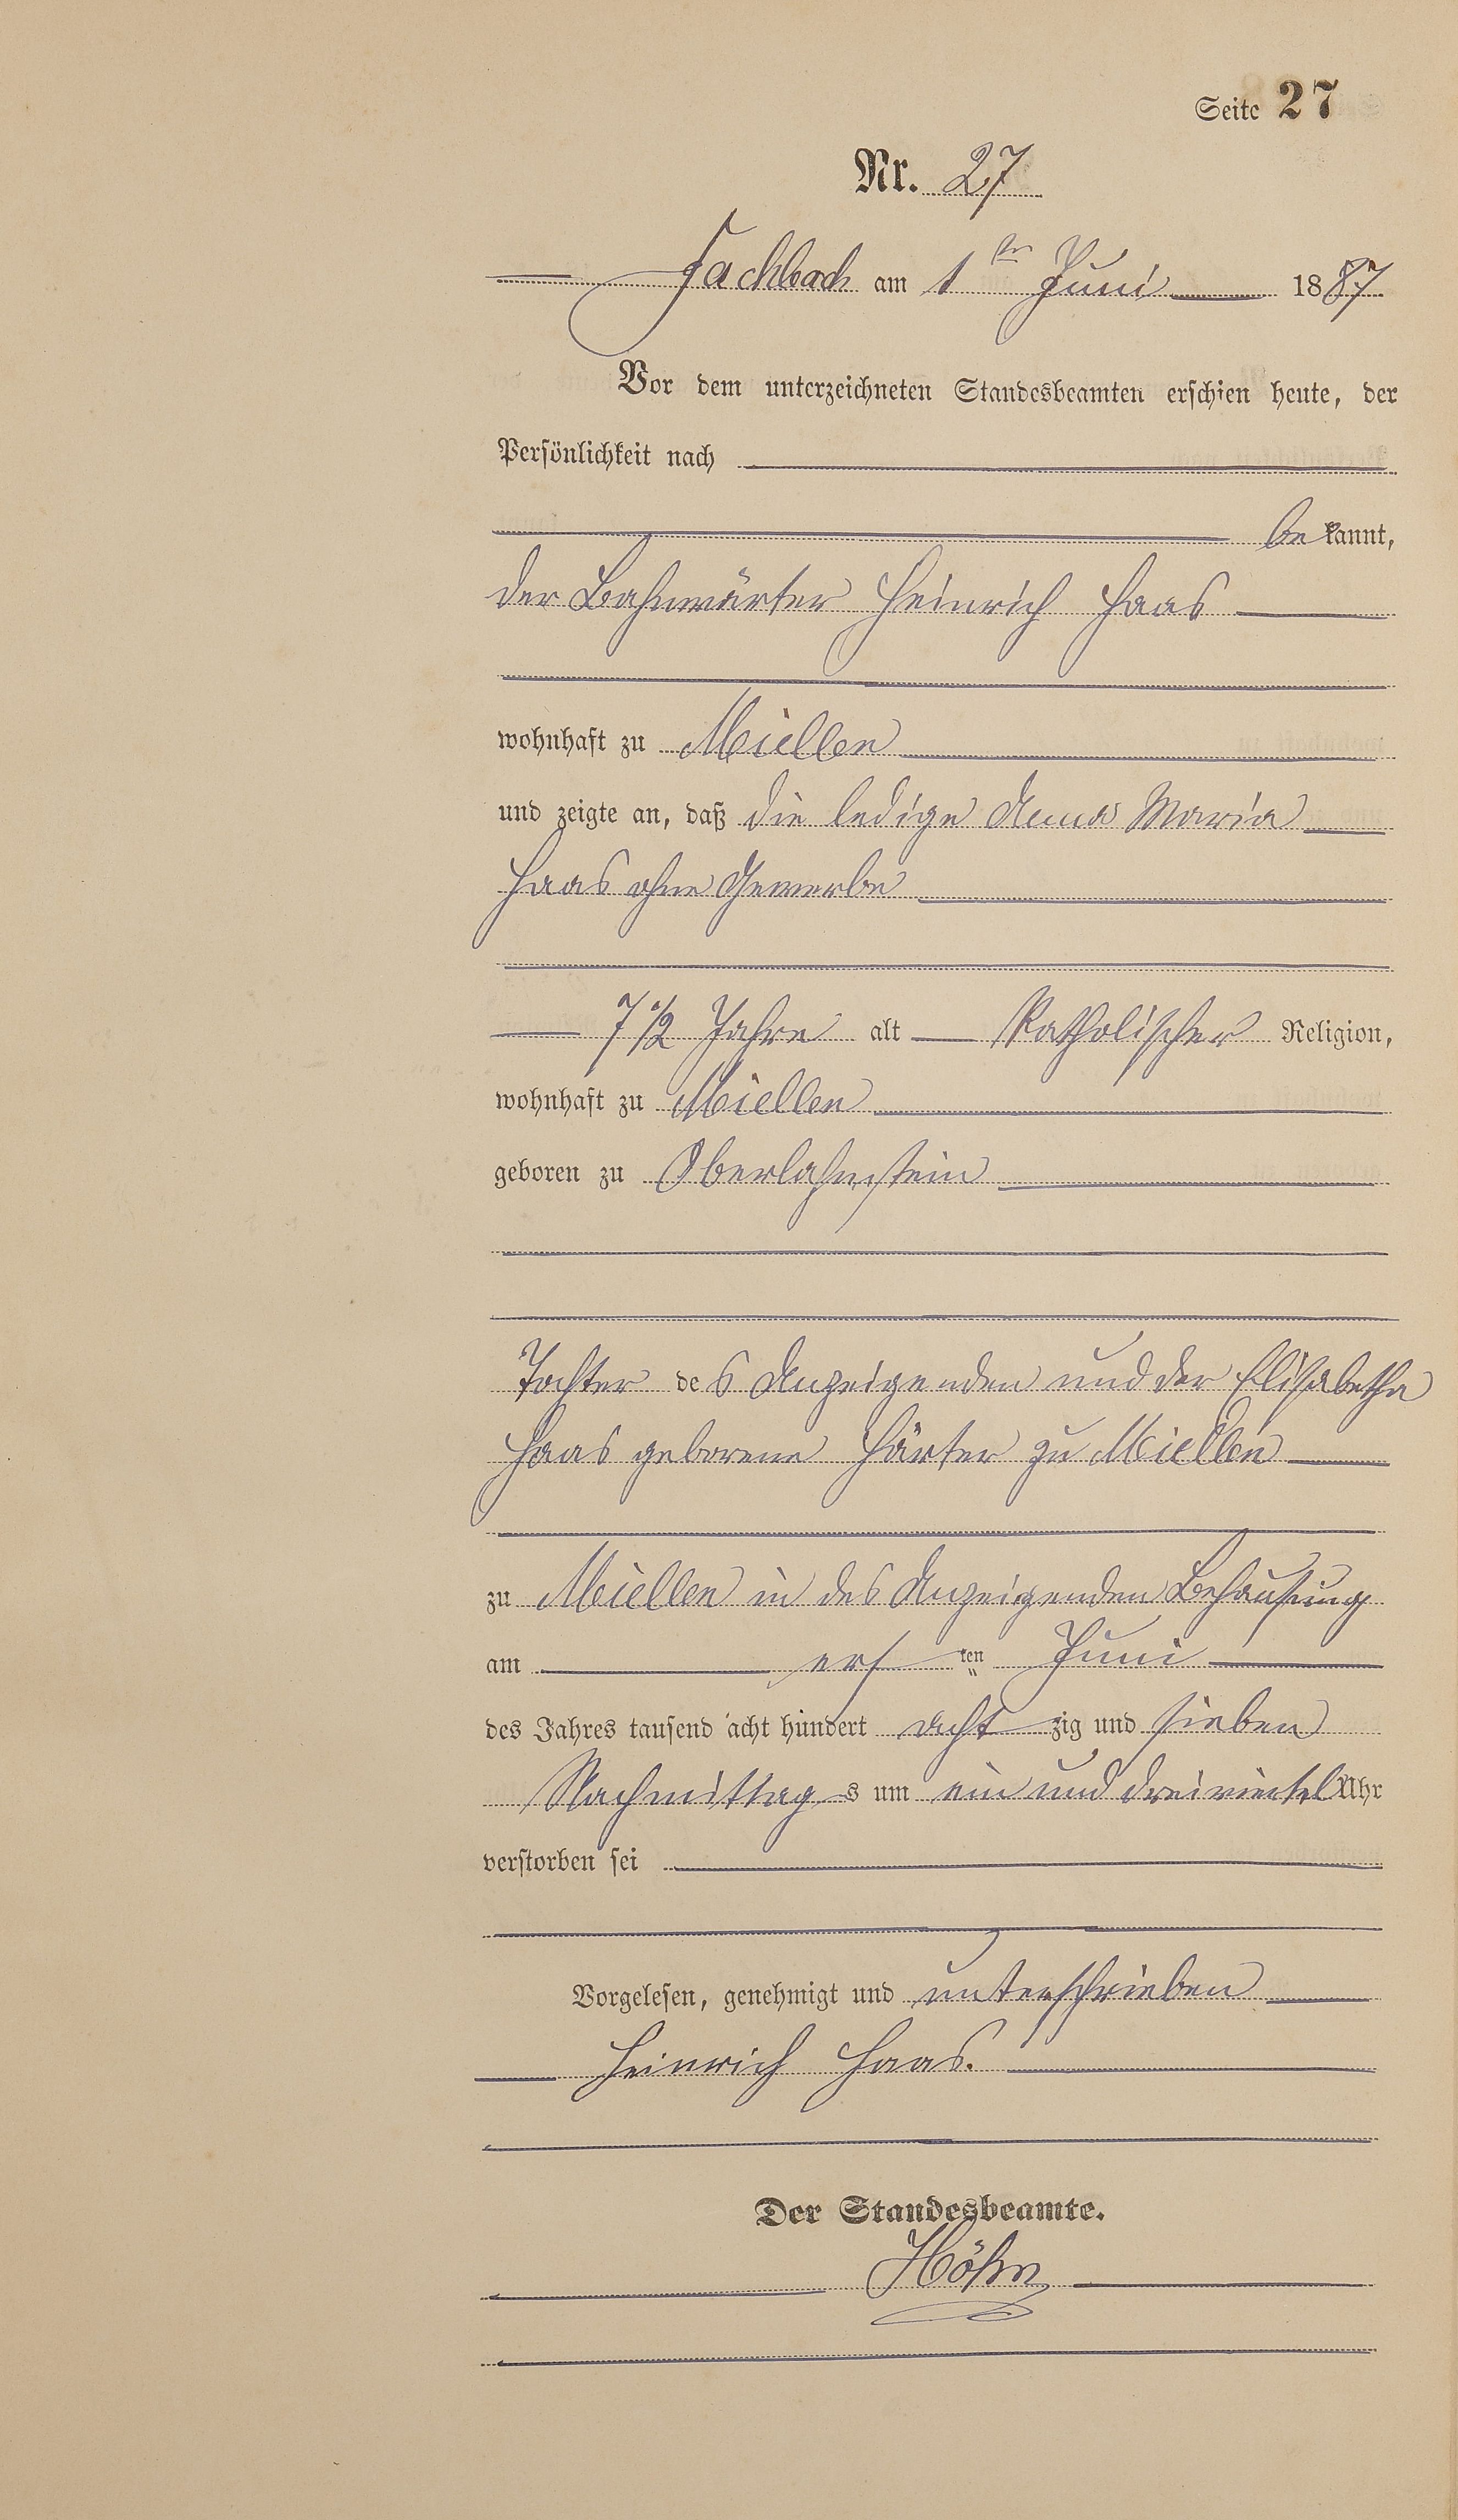 Seite 27
Nr. 27
Fachbach am 1ten Juni 1887
Vor dem unterzeichneten Standesbeamten erschien heute, der
Persönlichkeit nach
bekannt,
der Bahnwärter Heinrich Haas
wohnhaft zu Miellen
und zeigte an, daß die ledige Anna Maria
Haas ohne Gewerbe
7 1/2 Jahre alt katholischer Religion,
wohnhaft zu Miellen
geboren zu Oberlahnstein
Tochter des Anzeigenden und der Elisabetha
Haas geborene Härter zu Miellen
zu Miellen in des Anzeigenden Behausung
am ersten Juni
des Jahres tausend acht hundert achtzig und sieben
Nachmittags um ein und dreiviertel Uhr
verstorben sei
Vorgelesen, genehmigt und unterschrieben
Heinrich Haas.
Der Standesbeamte.
Höhn